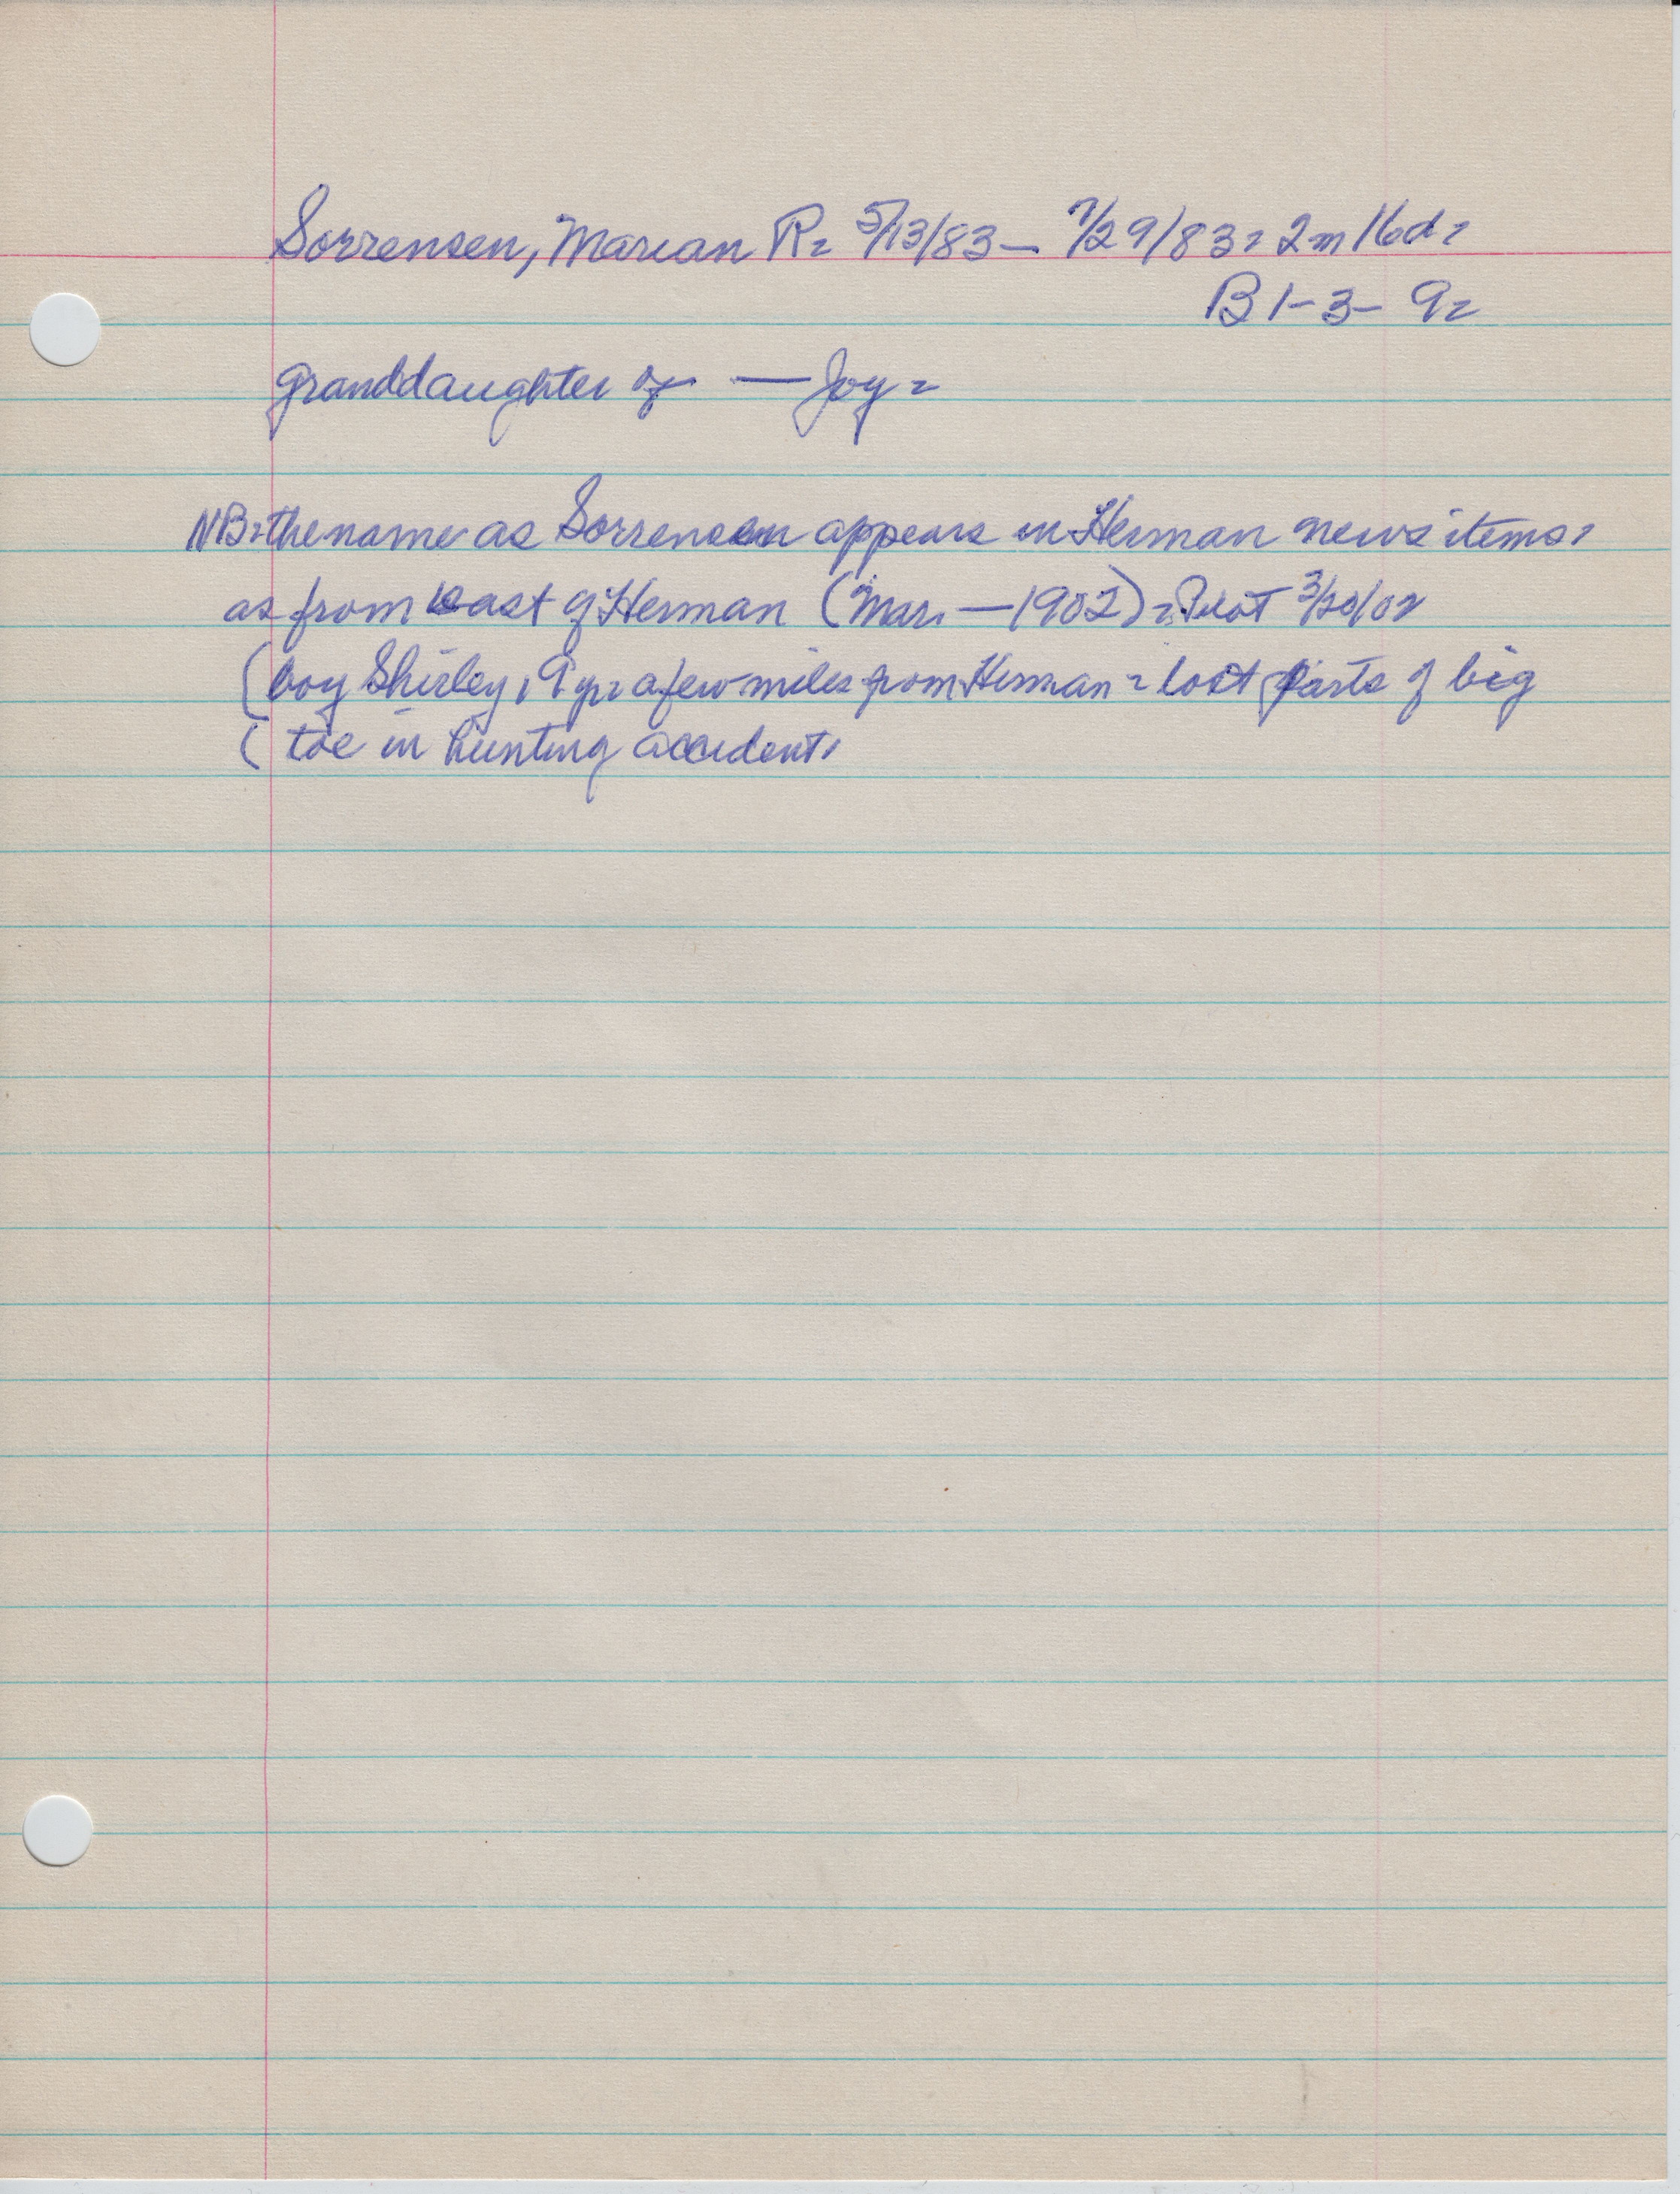 Sorrensen, Marian R= 5/13/83 — 7/29/83= 2m 16d=
B 1-3- 9=
granddaughter of — Joy=
NB: the name as Sorrensen appears in Herman news items=
as from east of Herman (Mar. — 1902)= Pilot 3/20/02
(boy Shirley, 9 yr= a few miles from Herman = lost parts of big
( toe in hunting accident=